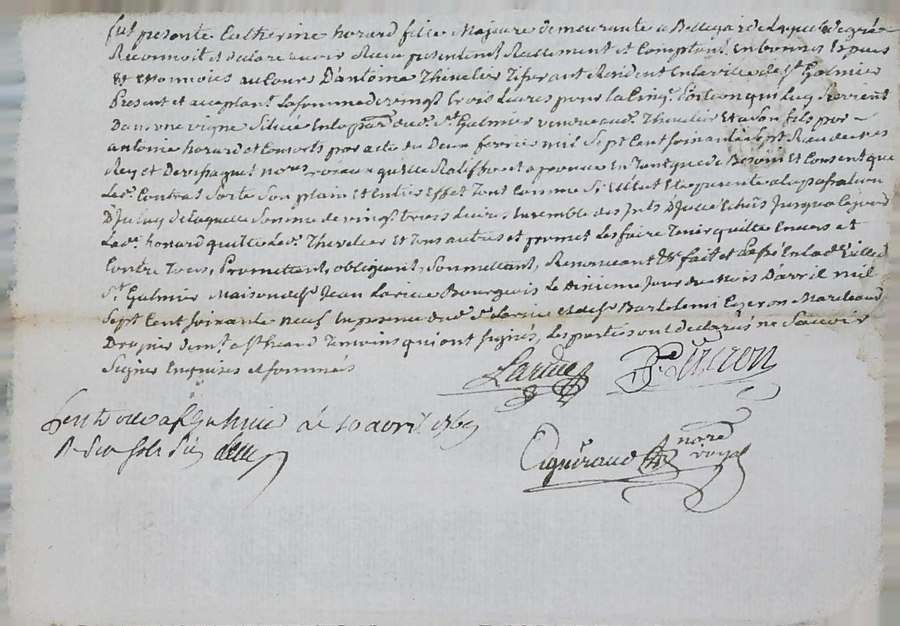 fut presente Catherine horard fille Majeure demeurante a Bellegarde Laquelle de gré
Reconnoit et declare avoir Receu presentement Reellement et Comptant En bonnes Espèces
Et monnoies au Cours D'antoine Theveler Tisserant Resident En la ville de St Galmier
Present et acceptant La somme de vingt trois Livres pour la Cinq. portion qui Luy
Dans une vigne Situee En la parr. dud. St Galmier vendue aud. Thevelier Et a Son fils par
antoine horard et Consorts par acte du Deux fevrier mil Sept Cent Soixante Sept Receu
Rey et notres roiaux qu'elle Ratiffie et approuve En Tant que de Besoin Et Consent que
Led. Contrat Sorte Son plain et Entier Effet Tout Comme Si Elle ut Ete presente a la passation
D'Iceluy de laquelle Somme de vingt trois Livres Ensemble des Intts D'Icelle Echûs Jusqua Ce jour
Lade. horard quitte Led. Thevelier Et Tous autres et promet Les faire Tenir quittes Envers et
Contre Tous, Promettant, obligeant, Soumettant, Renonceant &c fait et passé En lade. ville de
St Galmier Maison de Sr Jean Larive Bourgeois Le Dixieme Jour du Mois D'avril mil
Sept Cent Soixante Neuf En presence dud. Sr Larive et de Sr Bartelemi Marchand
a St Temoins qui ont Signés, Les parties ont declarés ne Sçavoir
Signer Enquises et sommées
Larive
a St Galmie le 10 avril 1769
notre
royal